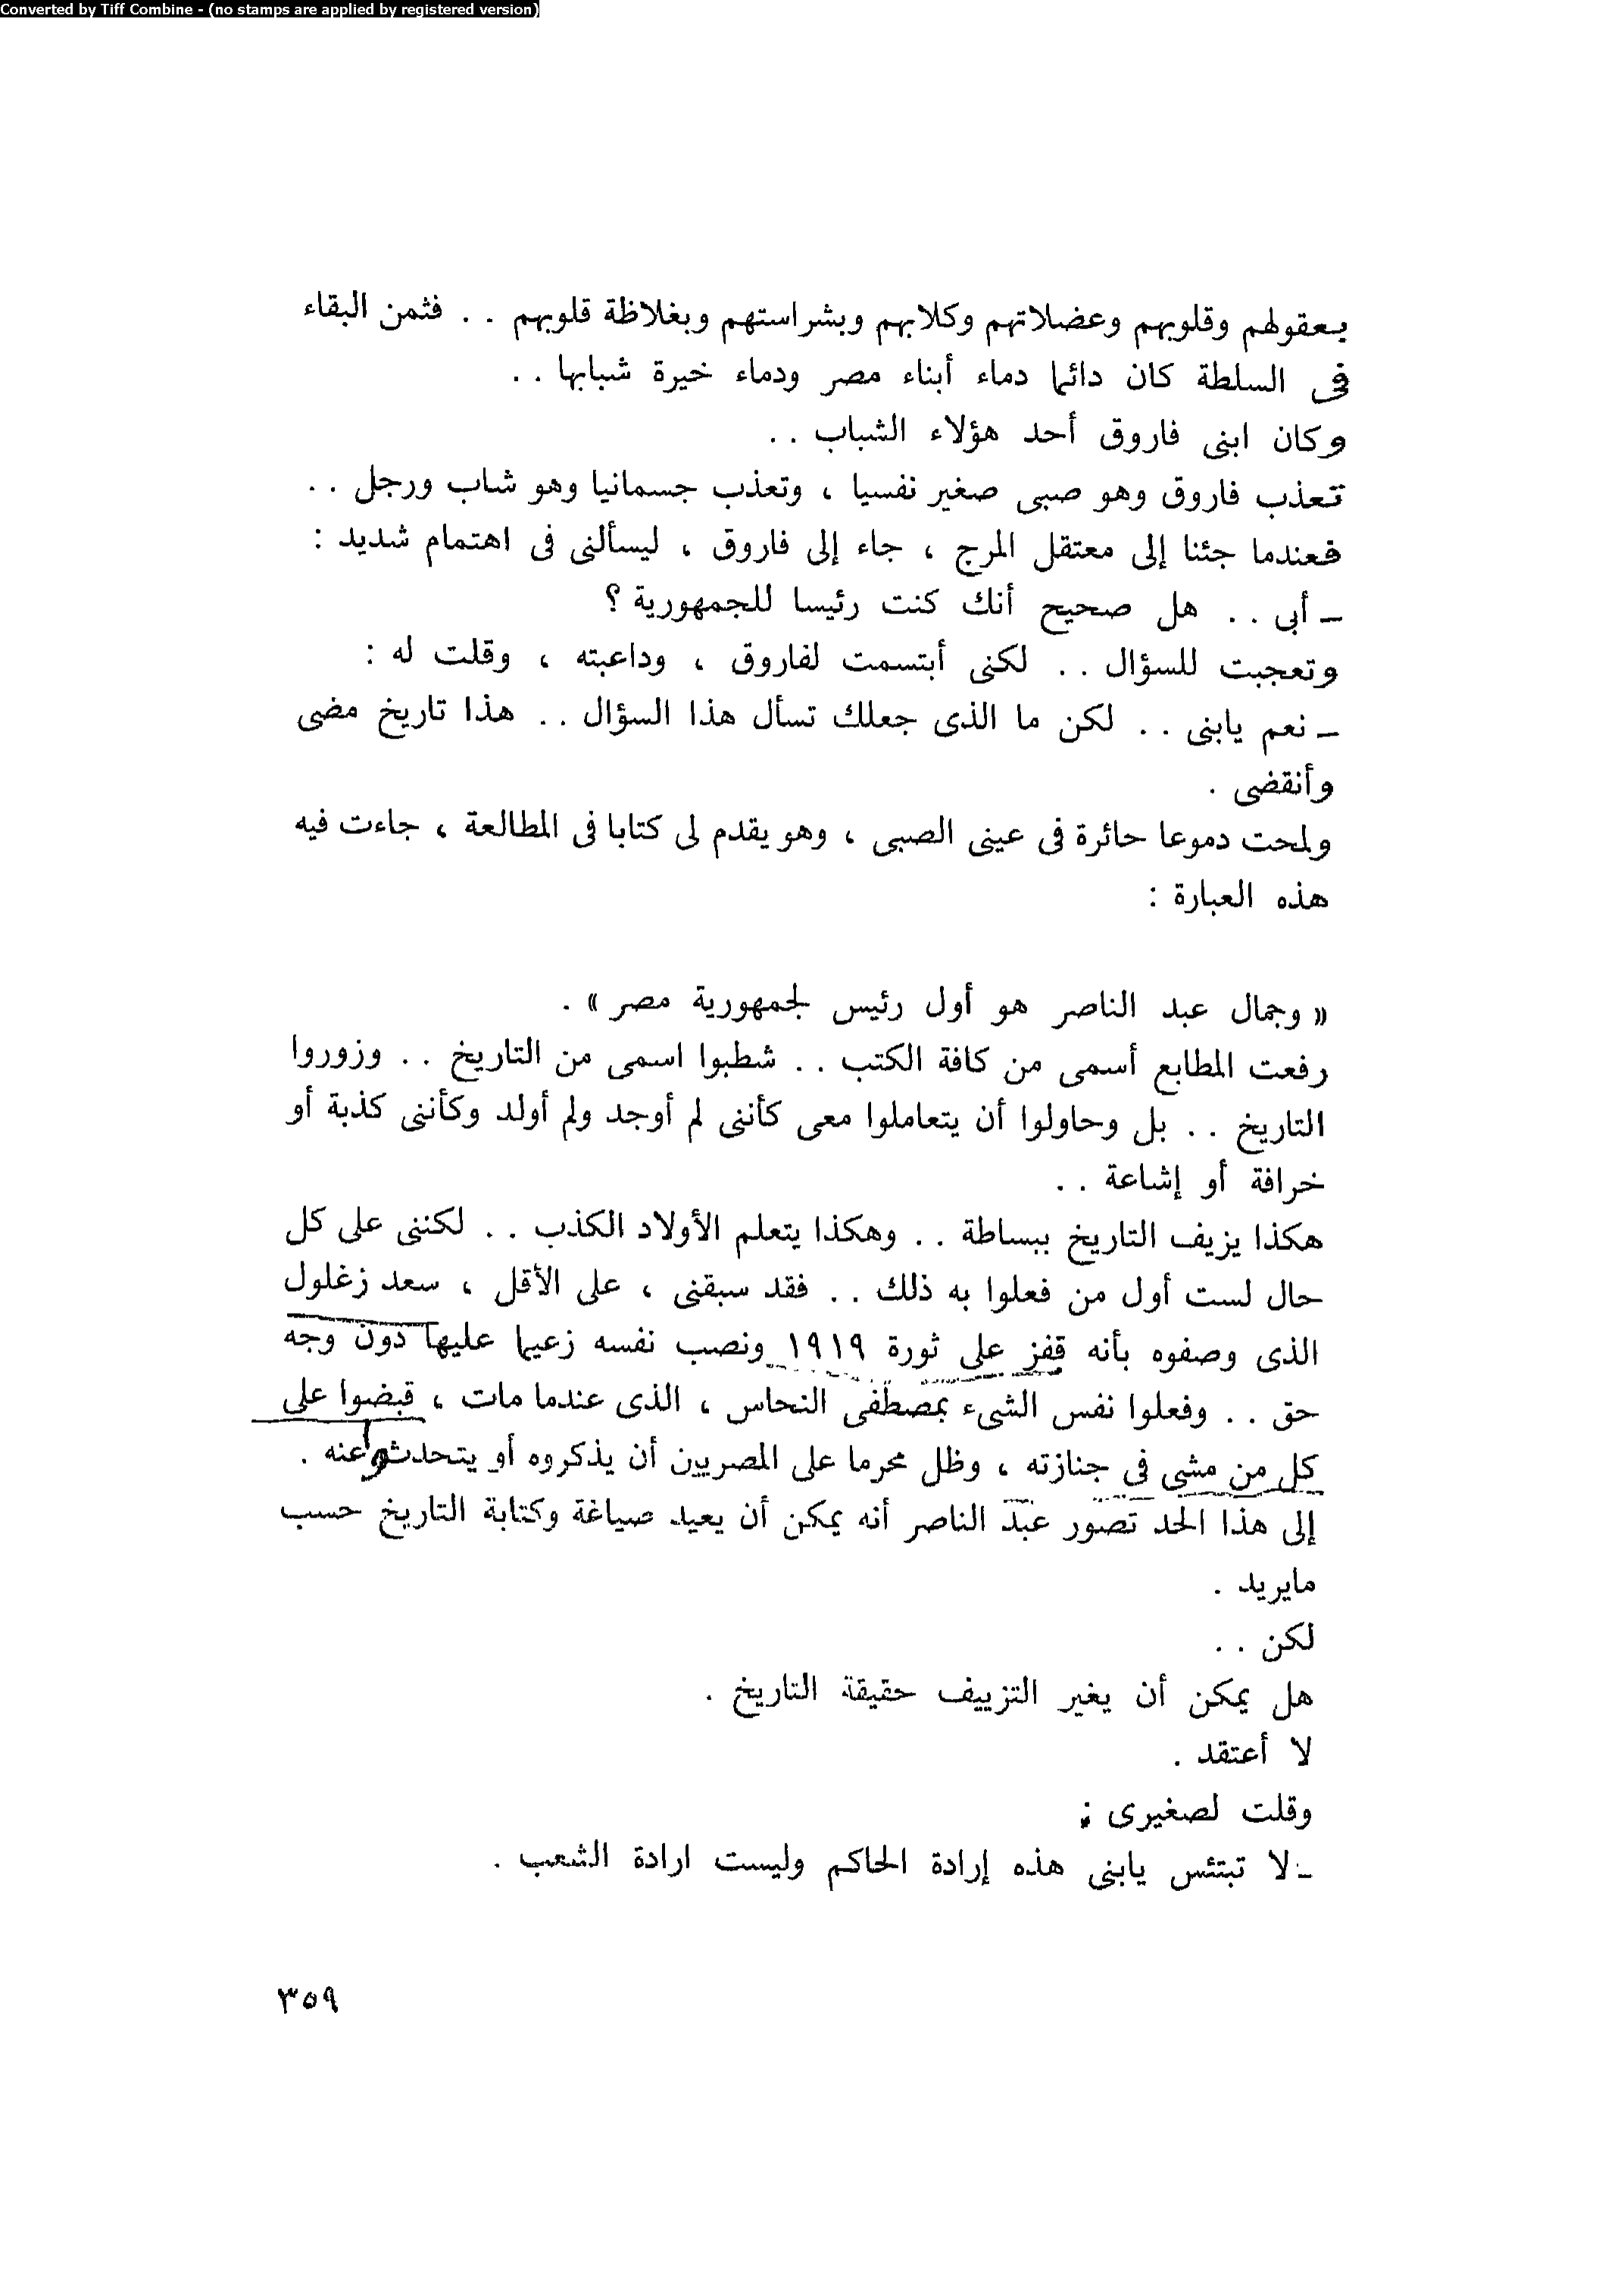 Converted by Tiff Combine - (no stamps are applied by registered version)
بعقولهم وقلوبهم وعضلاتهم وكلابهم وبشراستهم وبغلاظة قلوبهم . . فثمن البقاء
فى السلطة كان دائما دماء أبناء مصر ودماء خيرة شبابها . .
وكان ابنى فاروق أحد هؤلاء الشباب . .
تعذب فاروق وهو صبى صغير نفسيا ، وتعذب جسمانيا وهو شاب ورجل . .
فعندما جئنا إلى معتقل المرج ، جاء إلى فاروق ، ليسألنى فى اهتمام شديد :
ـ أبى . . هل صحيح أنك كنت رئيسا للجمهورية ؟
وتعجبت للسؤال . . لكنى أبتسمت لفاروق ، وداعبته ، وقلت له :
ـ نعم يابنى . . لكن ما الذى جعلك تسأل هذا السؤال . . هذا تاريخ مضى
وأنقضى .
ولمحت دموعا حائرة فى عينى الصبى ، وهو يقدم لى كتابا فى المطالعة ، جاءت فيه
هذه العبارة :
« وجمال عبد الناصر هو أول رئيس لجمهورية مصر » .
رفعت المطابع أسمى من كافة الكتب . . شطبوا اسمى من التاريخ . . وزوروا
التاريخ . . بل وحاولوا أن يتعاملوا معى كأننى لم أوجد ولم أولد وكأننى كذبة أو
خرافة أو إشاعة . .
هكذا يزيف التاريخ ببساطة . . وهكذا يتعلم الأولاد الكذب . . لكننى على كل
حال لست أول من فعلوا به ذلك . . فقد سبقنى ، على الأقل ، سعد زغلول
الذى وصفوه بأنه قفز على ثورة ١٩١٩ ونصب نفسه زعيما عليها دون وجه
حق . . وفعلوا نفس الشىء بمصطفى النحاس ، الذى عندما مات ، قبضوا على
كل من مشى فى جنازته ، وظل محرما على المصريين أن يذكروه أو يتحدثوا عنه .
إلى هذا الحد تصور عبد الناصر أنه يمكن أن يعيد صياغة وكتابة التاريخ حسب
مايريد .
لكن . .
هل يمكن أن يغير التزييف حقيقة التاريخ .
لا أعتقد .
وقلت لصغيرى :
ـ لا تبتئس يابنى هذه إرادة الحاكم وليست ارادة الشعب .
٣٥٩